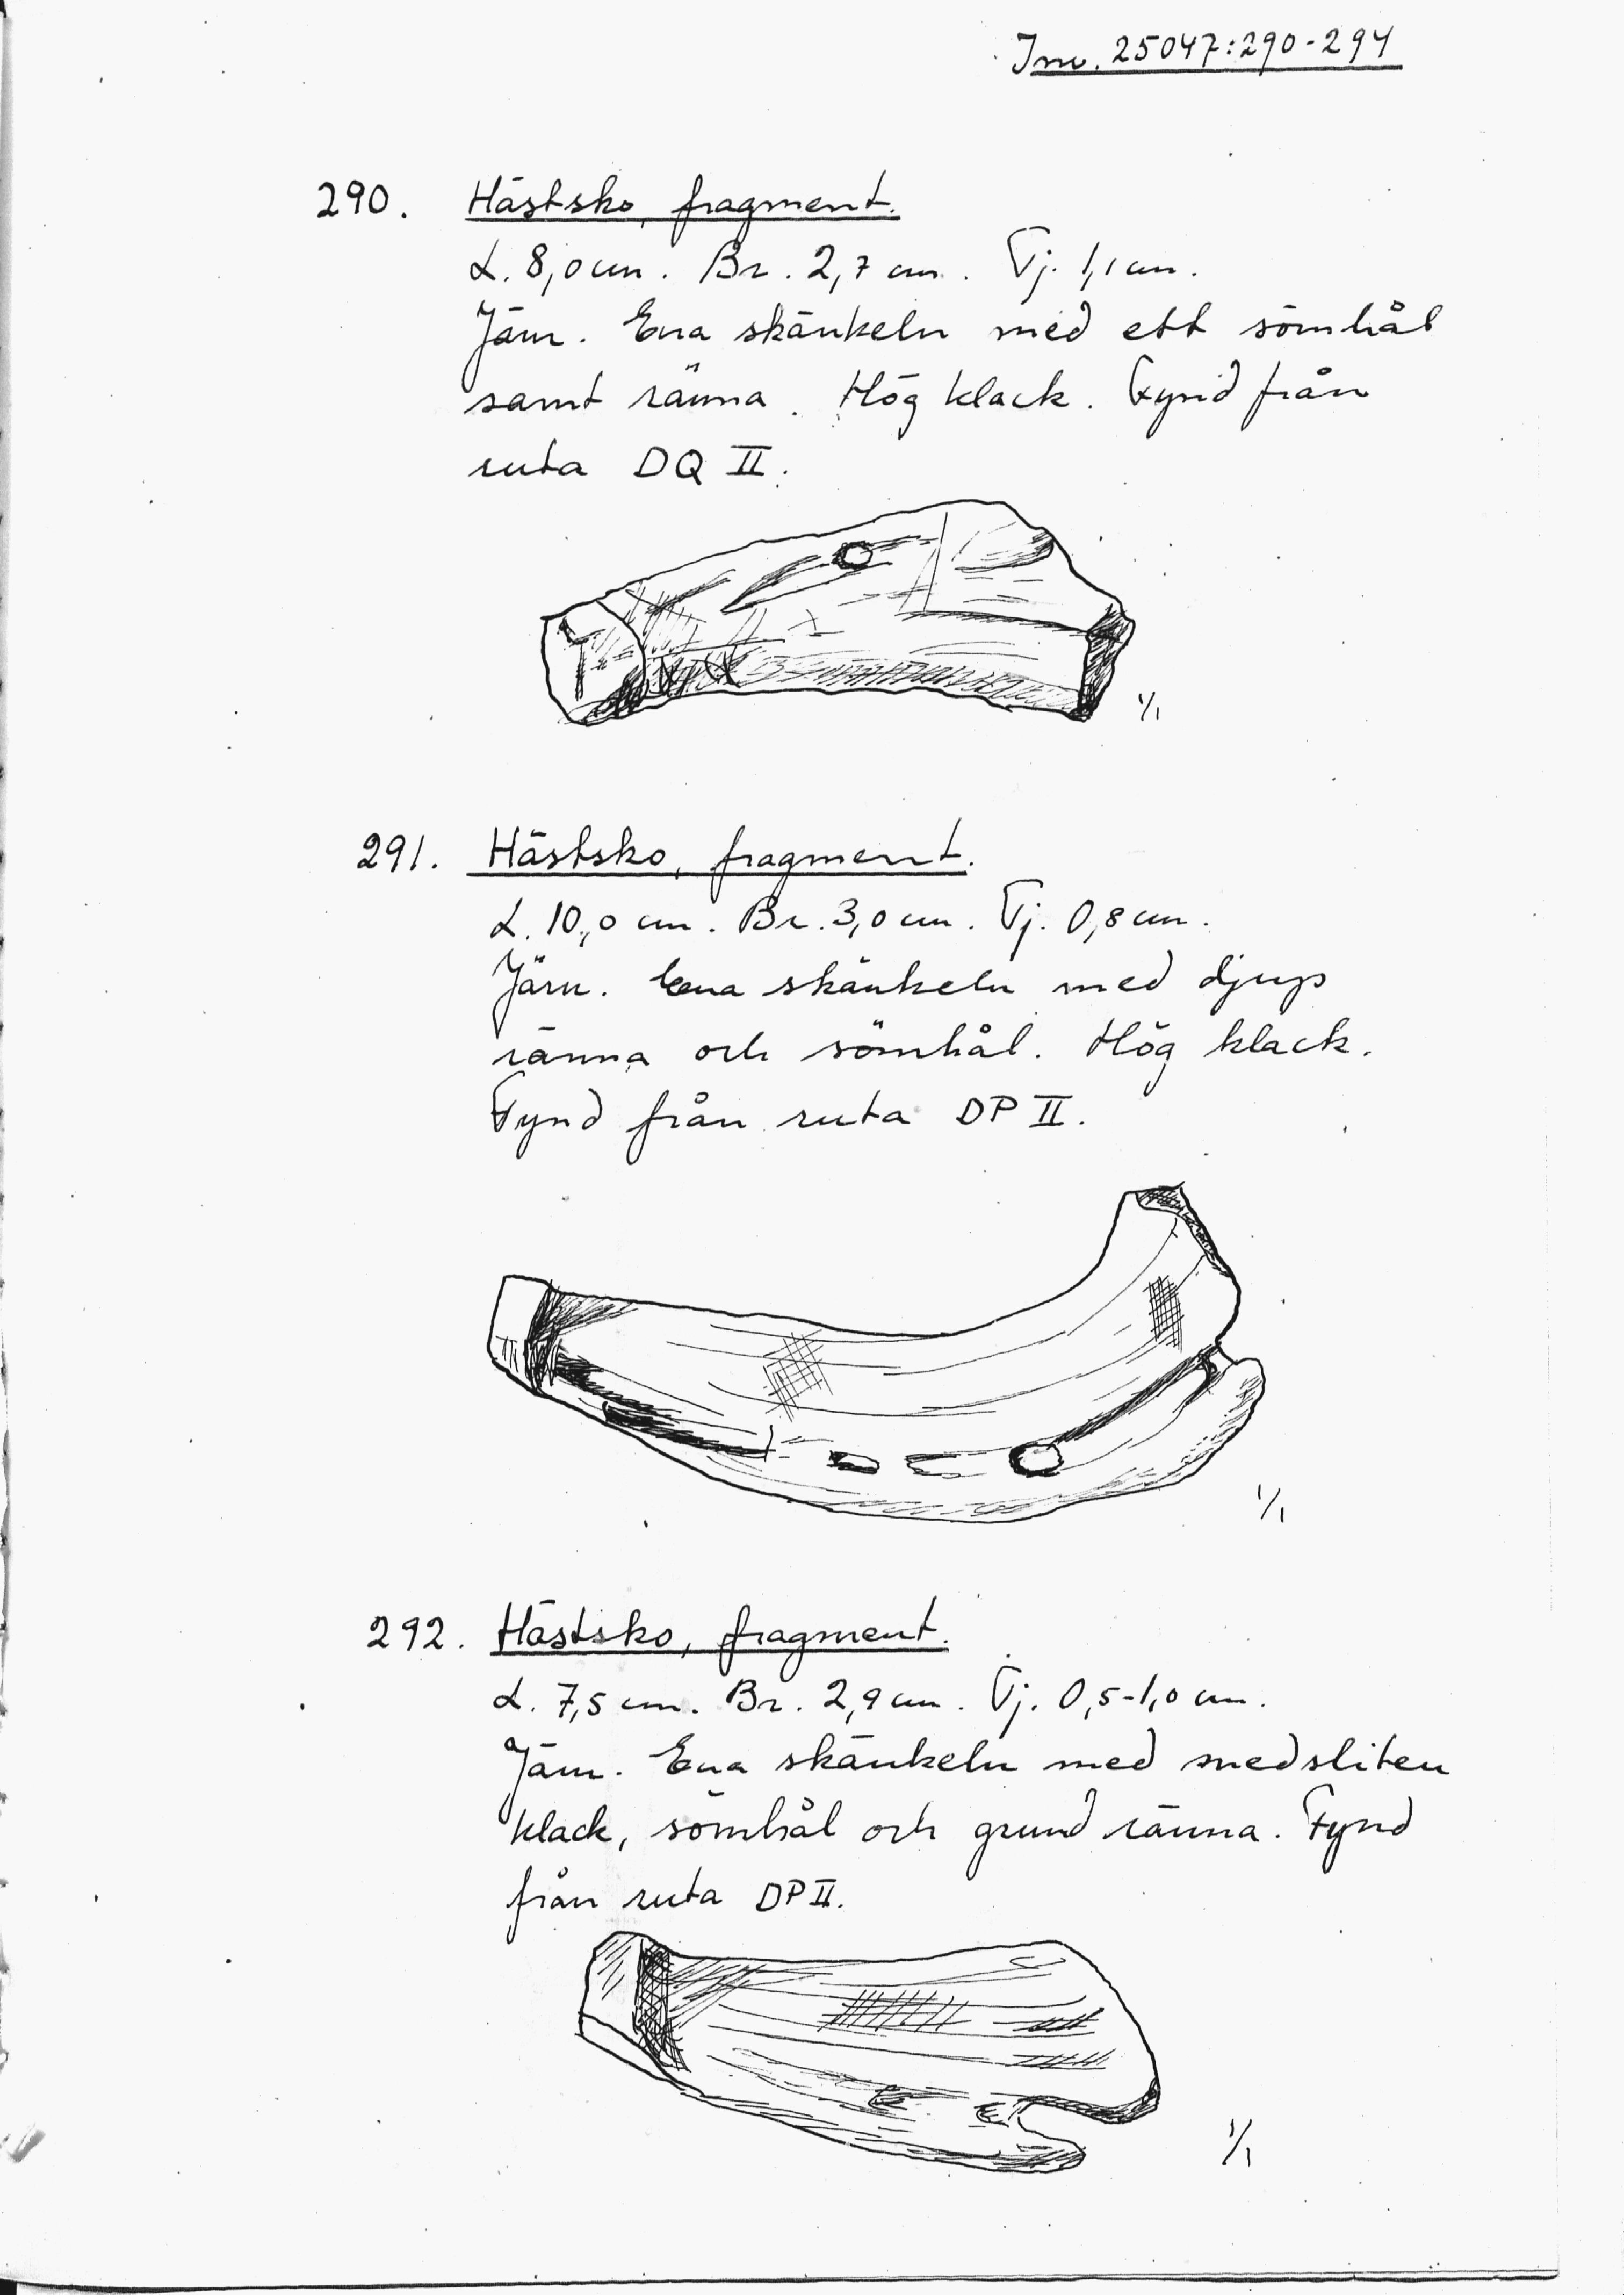 Inv. 25047:290-294
290. Hästsko, fragment.
L. 8,0 cm. Br. 2,7 cm. Tj. 1,1 cm.
Järn. Ena skänkeln med ett sömhål
samt ränna. Hög klack. Fynd från
ruta DQ II.
1/1
291. Hästsko, fragment.
L. 10,0 cm. Br. 3,0 cm. Tj. 0,8 cm.
Järn. Ena skänkeln med djup
ränna och sömhål. Hög klack.
Fynd från ruta DP II.
1/1
292. Hästsko, fragment.
L. 7,5 cm. Br. 2,9 cm. Tj. 0,5-1,0 cm.
Järn. Ena skänkeln med nedsliten
klack, sömhål och grund ränna. Fynd
från ruta DP II.
1/1